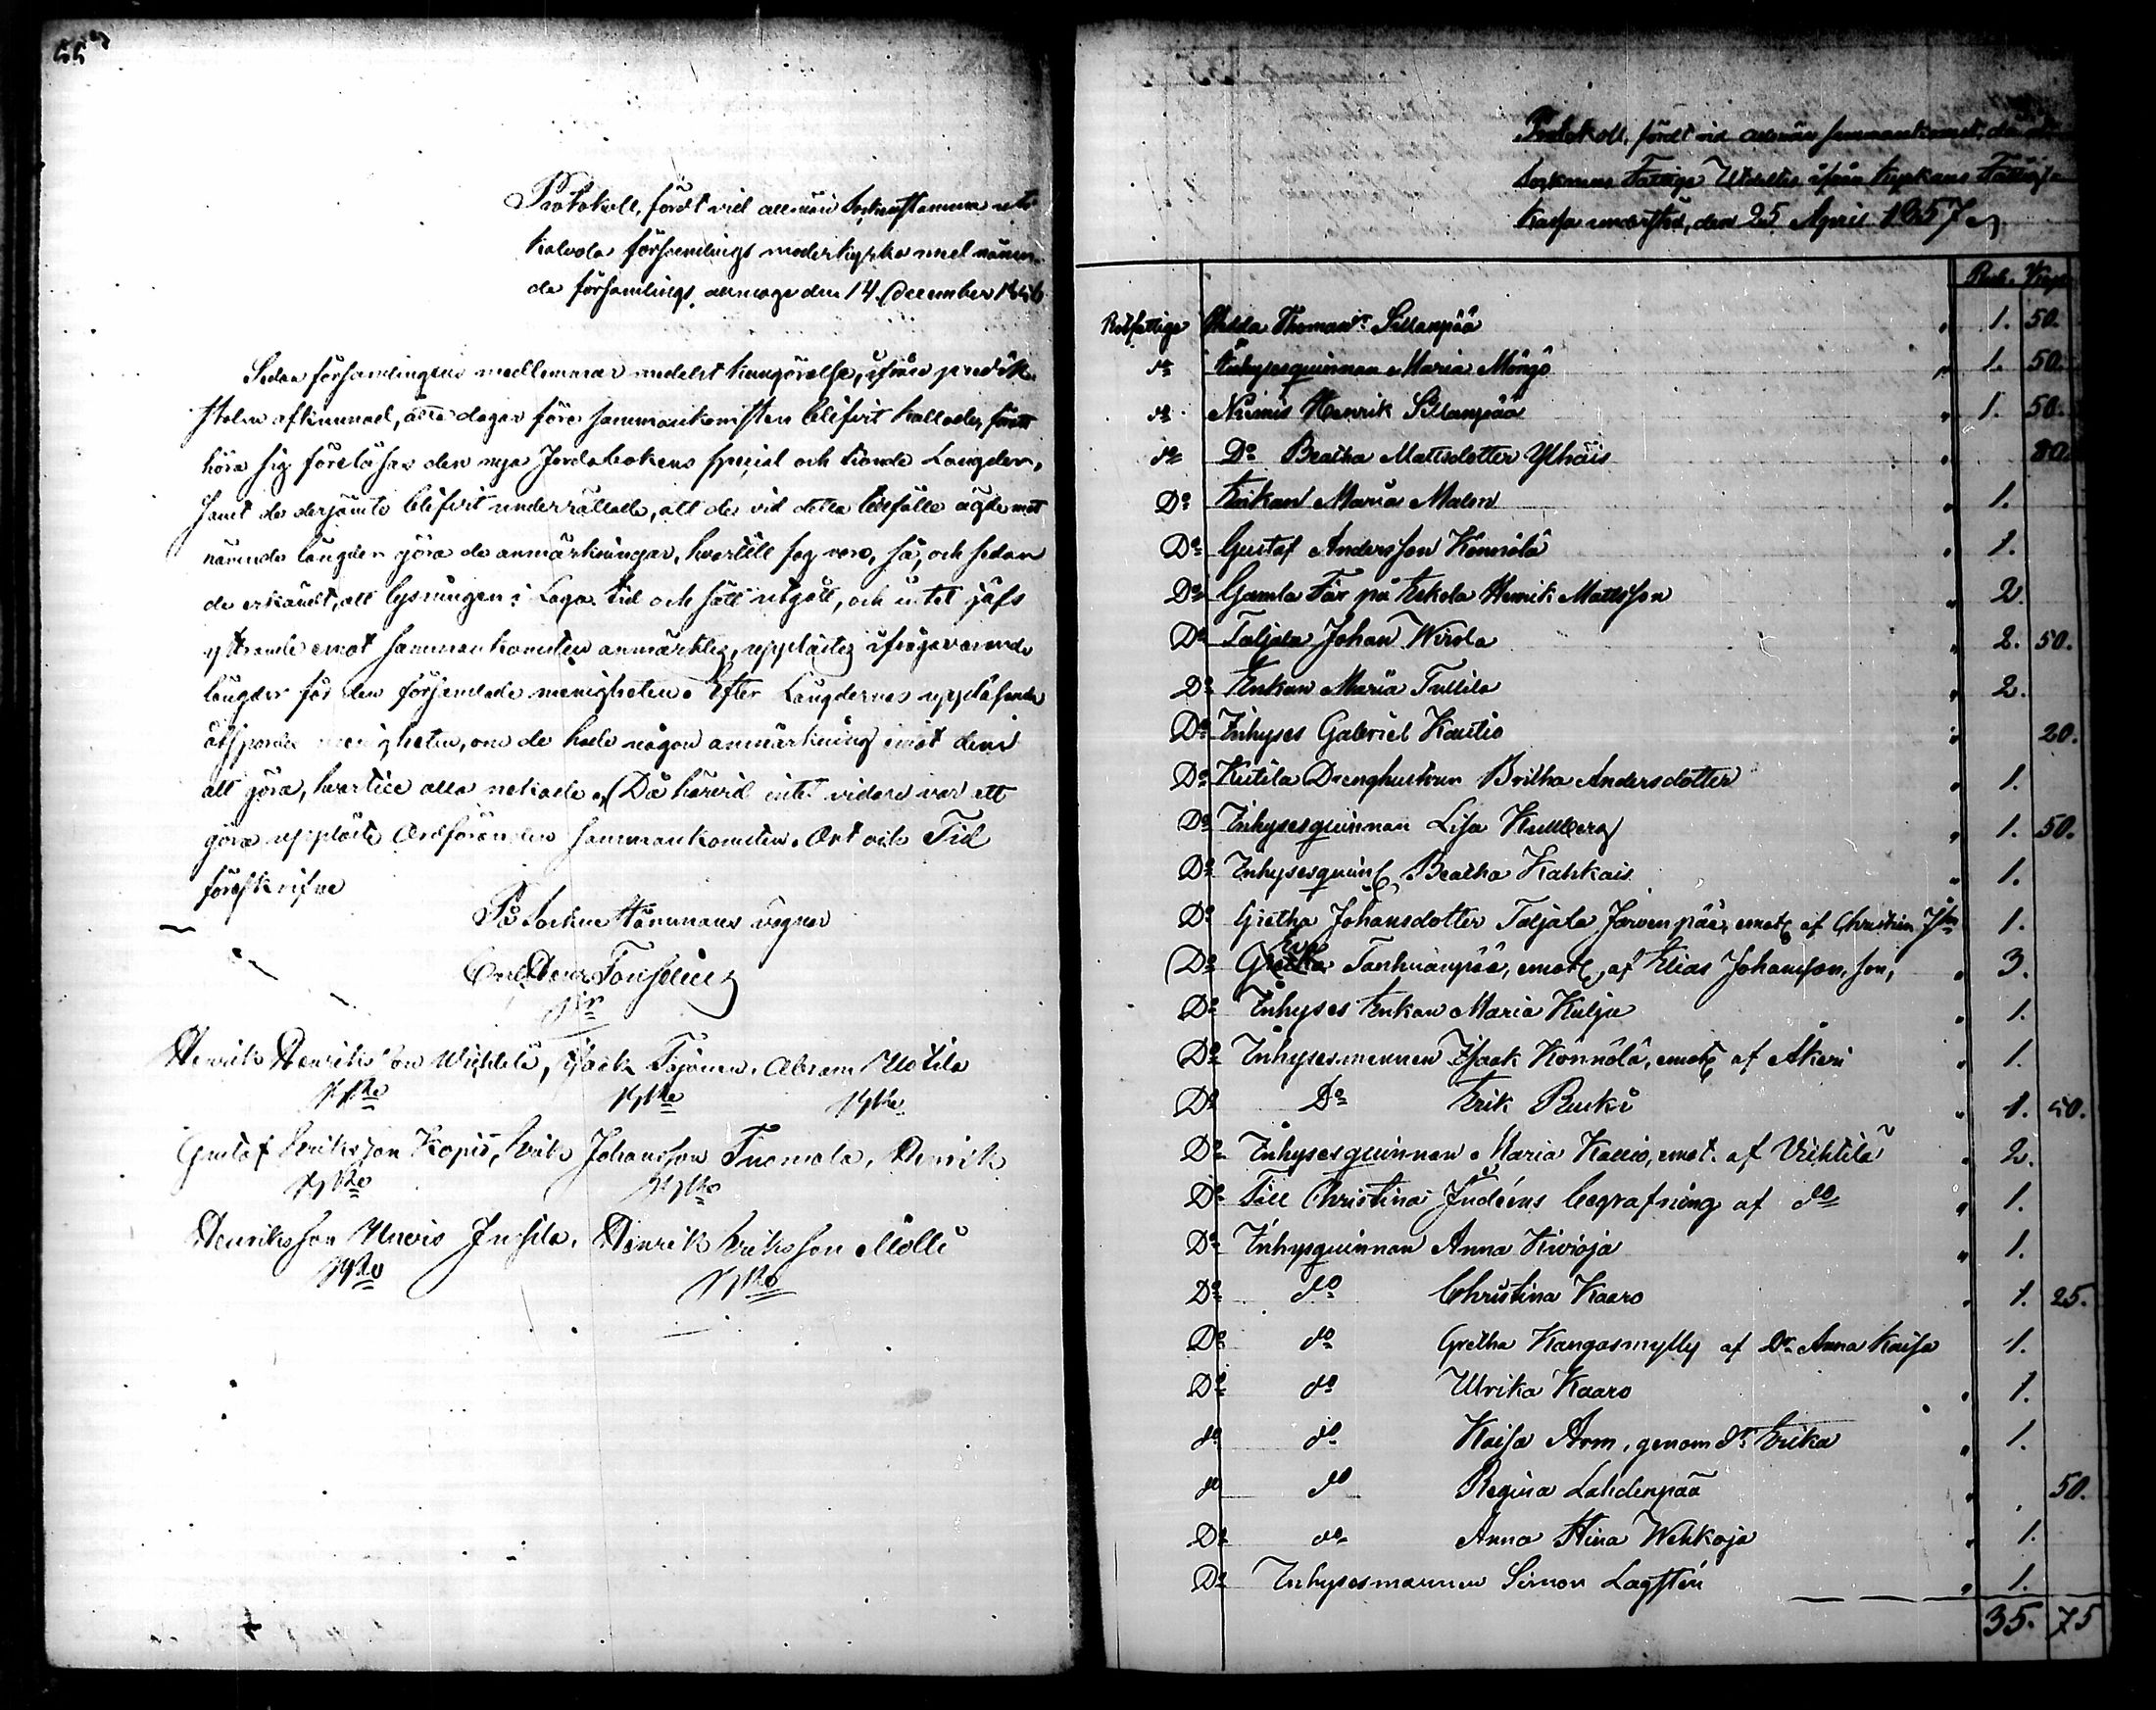 Protokoll, fördt vid allmän Sockenstämma uti
Kalvola församlings moderkyrka med nämn-
de församlings allmoge den 14. December 1856
Sedan församlingens medlemmar medelst kungörelse, ifrån predik-
stolen afkunnad, åtta dagar före sammankomsten blifvit kallade, för att
höra sig föreläsas den nya Jordabokens special och tionde Längder,
samt de derjämte blifvit underrättade, att de vid detta tillfälle ägde mot
nämnde längder göra de anmärkningar, hvartill sog vore, så, och sedan
de erkändt, att lysningen i Laga tid och sätt utgått, och intet jäfs
yttrande emot sammankomsten anmärktes, upplästes ifrågavarande
längder för den församlade menigheten. Efter Längdernes uppläsande
åtsporde menigheten, om de hade någon anmärkning emot dem
att göra, hvartill alla nekade. Då härvid intet vidare var att
göra upplöste Ordföranden sammankomsten. Ort och Tid
föreskrifne
På Sockne Stämmans vägnar
Henrik Henriksson Wichtilä, Isack Tojonen, Abram Uotila
Gustaf Eriksson Kopis, Erik Johansson Tuomola, Henrik
Henriksson Unois Jussila, Henrik Eriksson Mälli
Protokoll, fördt vid allmän sammankomst, då
Socknens Fattige Utdeltes ifrån Kyrkans Fattig
Kassa understöd, den 25 April 1857
Rub. Kop
Rotfattige Hedda Thomasdr Sillanpää 1. 50.
do Inhysesquinnan Maria Möngö 1. 50.
do Niimis Henrik Sillanpää 1. 50.
do Do Beatha Mattsdotter Ylhäis 80.
Do Enkan Maria Malen 1.
Do Gustaf Andersson Könnölä 1.
Do Gamla Far på Eskola Henrik Mattsson 2.
Do Taljala Johan Wirola 2. 50.
Do Enkan Maria Tullila 2.
Do Inhyses Gabriel Kautio 20.
Do Kutila Drenghustrun Britha Andersdotter 1.
Do Inhysesquinnan Lisa Kullberg 1. 50.
Do Inhysesquin Beatha Kahkais 1.
Do Gretha Johansdotter Taljala Jarvenpää, emot af Christian 1.
Do Eva Tanhuanpää, emot af Elias Johansson, son, 3.
Do Inhyses Enkan Maria Kulju 1.
Do Inhysesmannen Isaak Könnölä, emot af Åkeri 1.
Do Do Erik Ruski 1. 50.
Do Inhysesquinnan Maria Kallio, emot. af Vichtilä 2.
Do Till Christina Judéens begrafning af do 1.
Do Inhysquinnan Anna Kivioja 1.
Do do Christina Kaaro 1. 25.
Do do Gretha Kangasmylly af Dr Anna Kaisa 1.
Do do Ulrika Kaaro 1.
do do Kaisa Arm, genom dr Erika 1.
do do Regina Lahdenpää 50.
Do do Anna Stina Wehkoja 1.
Do Inhysesmannen Simon Lagstén 1.
35. 75